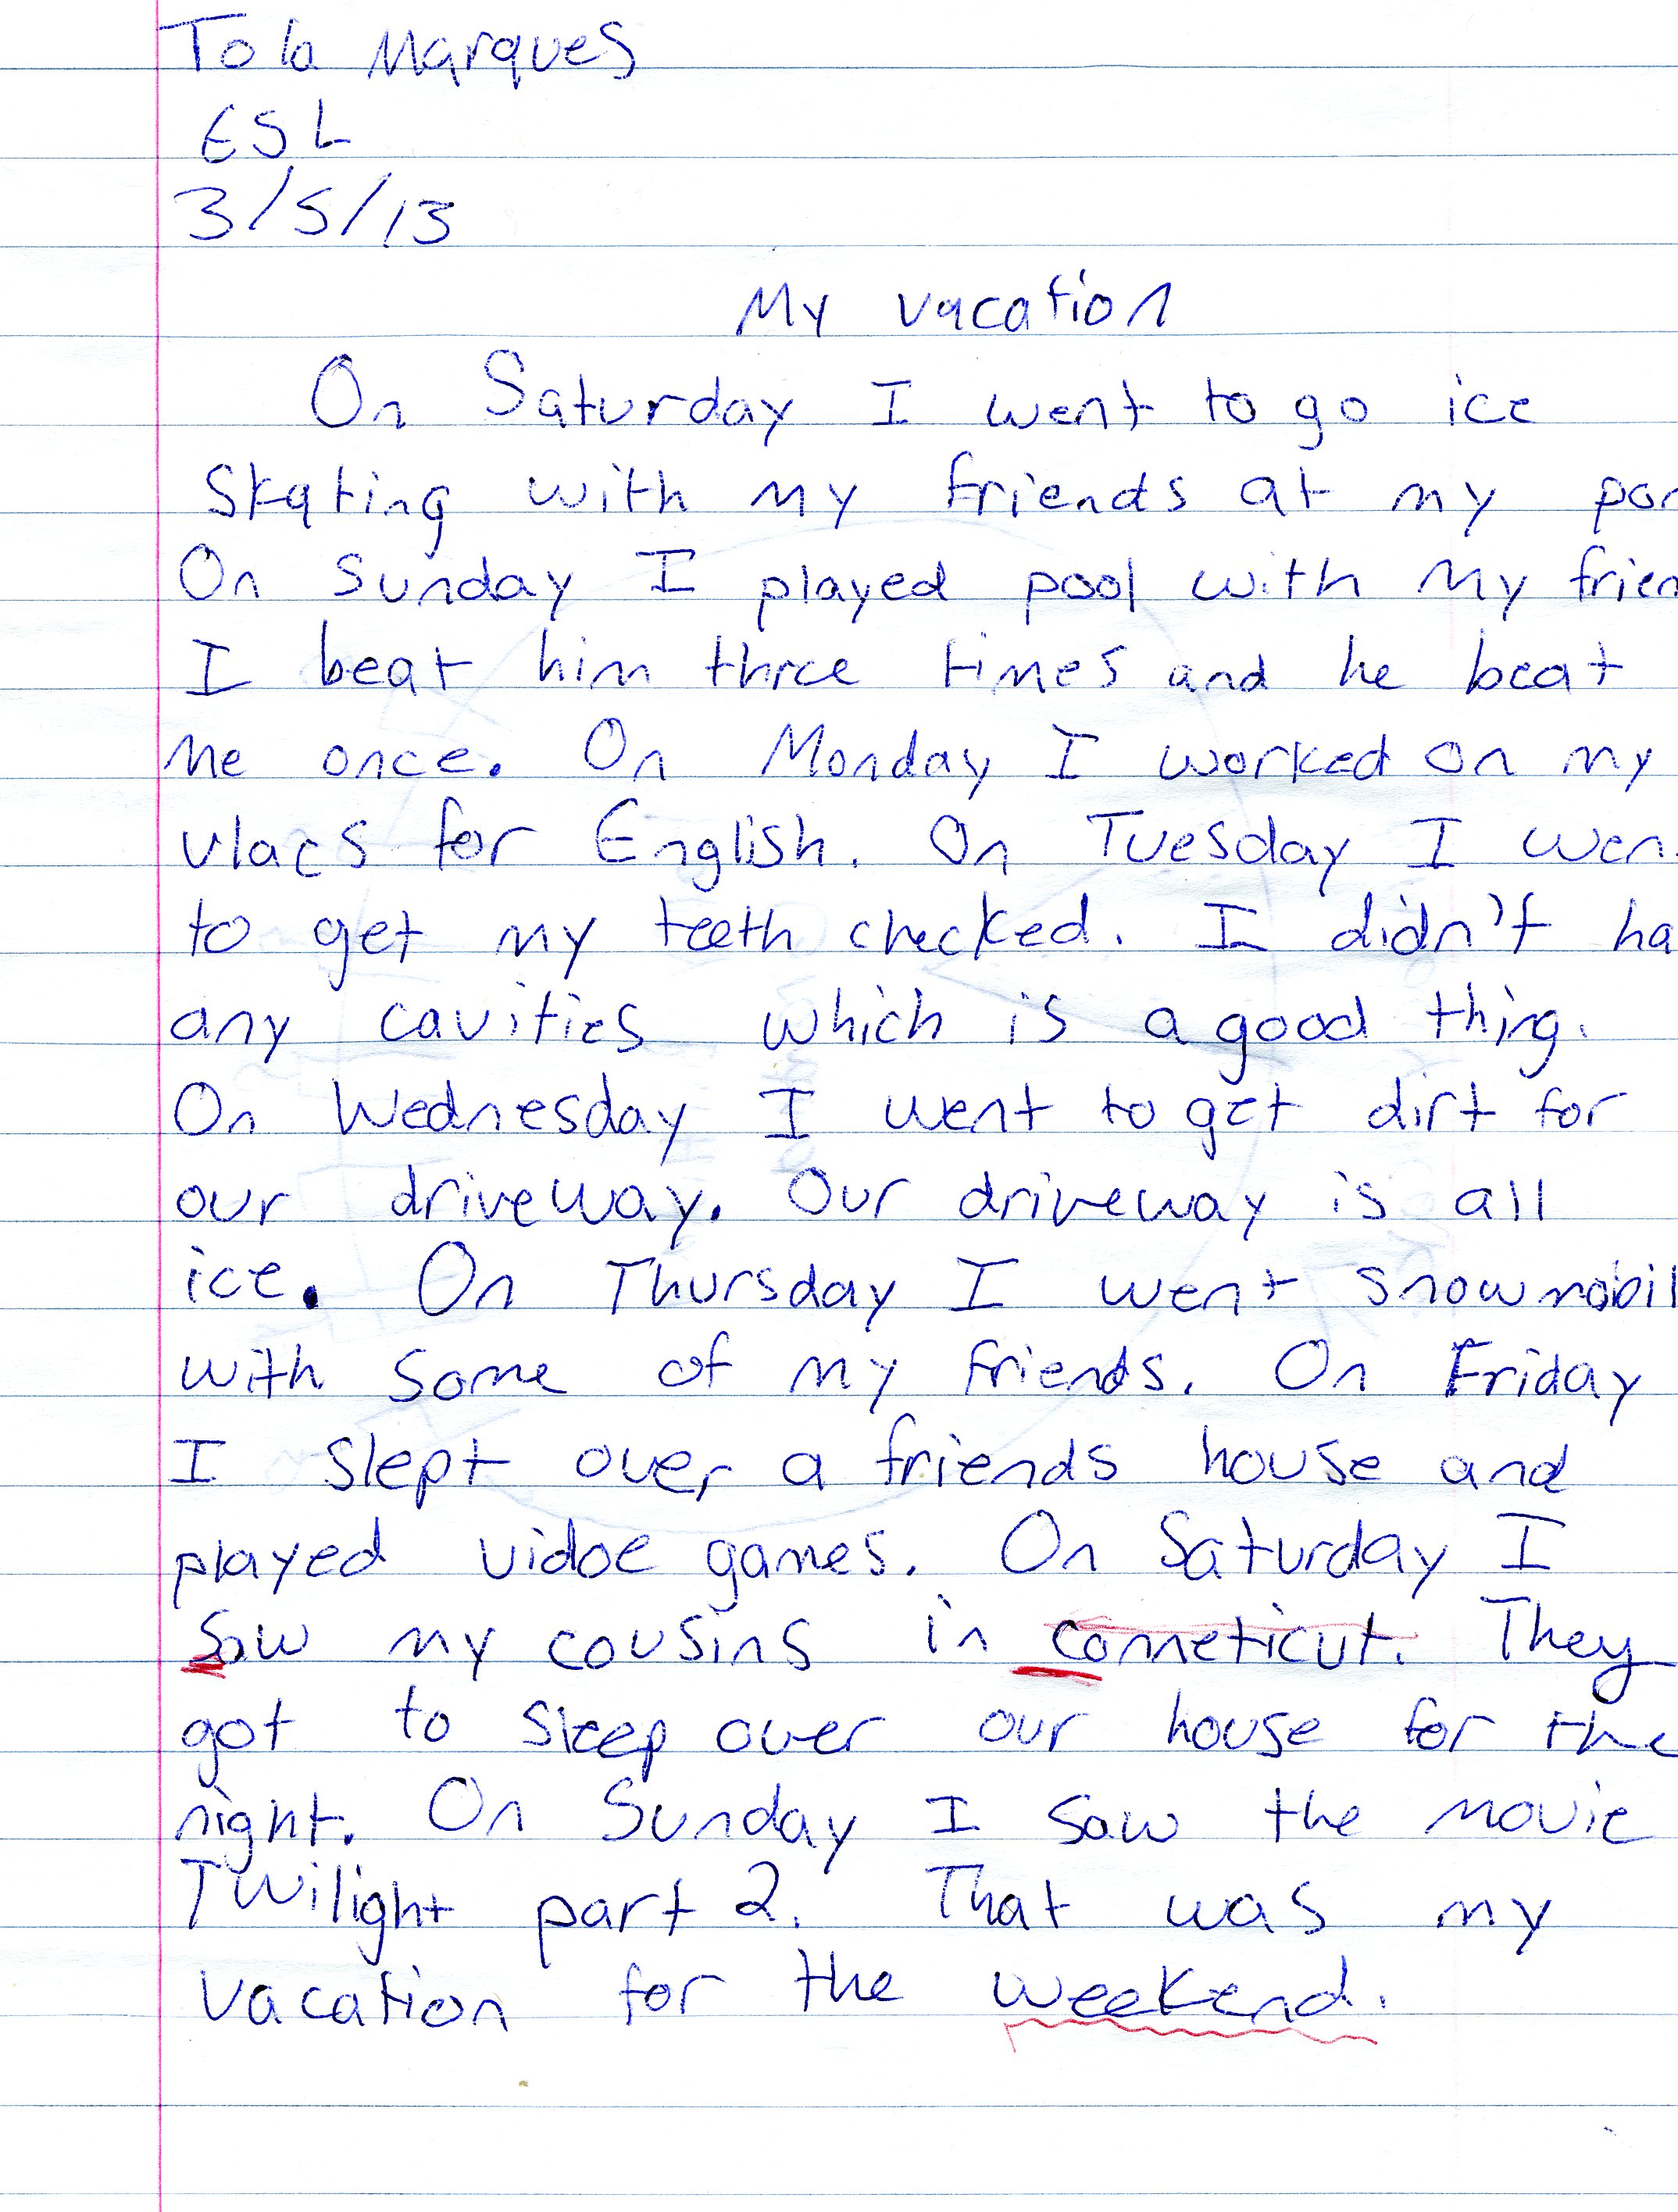 Tola Marques
ESL
3/5/13
My vacation
On Saturday I went to go ice
Skating with my friends at my pon
On Sunday I played pool with my frien
I beat him three times and he beat
me once. On Monday I worked on my
vlacs for English. On Tuesday I wen
to get my teeth checked. I didn't ha
any cavities which is a good thing.
On Wednesday I went to get dirt for
our driveway. Our driveway is all
ice. On Thursday I went snowmobil
with some of my friends. On Friday
I slept over a friends house and
played vidoe games. On Saturday I
saw my cousins in conneticut. They
got to sleep over our house for the
night. On Sunday I saw the movie
Twilight part 2. That was my
vacation for the weekend.